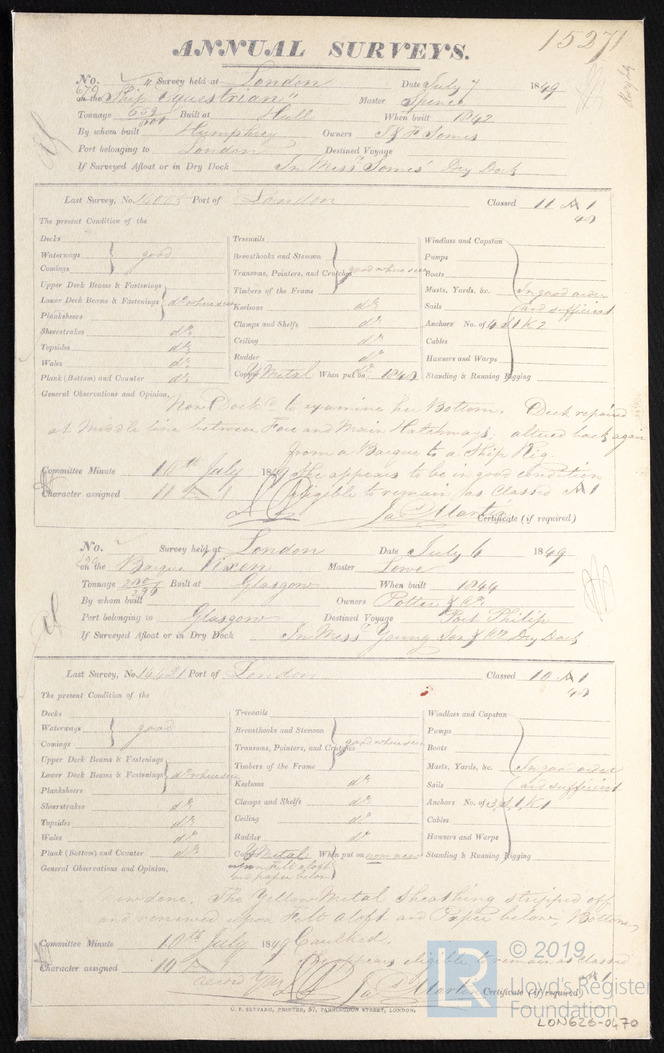 ANNUAL SURVEYS.
15271
No. 679 Survey held at London Date July 7 1849
on the Ship "Equestrian" Master Spence
Tonnage Built at Hull When built 1842
By whom built Humphrey Owners J & F Somes
Port belonging to London Destined Voyage
If Surveyed Afloat or in Dry Dock In Messrs Somes' Dry Dock
Last Survey, No. Port of London Classed 11 A 1
49
The present Condition of the
Decks
Waterways good
Comings
Upper Deck Beams & Fastenings
Lower Deck Beams & Fastenings do where seen
Planksheers
Sheerstrakes do
Topsides do
Wales do
Plank (Bottom) and Counter do
Treenails
Breasthooks and Stemson
Transoms, Pointers, and Crutches good where seen
Timbers of the Frame
Keelsons do
Clamps and Shelfs do
Ceiling do
Rudder do
Copper Y Metal When put on 1848
Windlass and Capstan
Pumps
Boats
Masts, Yards, &c. In good order
Sails and sufficient
Anchors No. of
Cables
Hawsers and Warps
Standing & Running Rigging
General Observations and Opinion,
Now Dockd to examine her Bottom. Deck repaired
at Middle line between Fore and Main Hatchways, altered back again
from a Barque to a Ship Rig.
Committee Minute 10th July 1849 She appears to be in good condition
Character assigned 11 A 1 eligible to remain as Classed A 1
Jas Martin Certificate (if required)
No. Survey held at London Date July 6 1849
on the Barque Vixen Master Lowe
Tonnage Built at Glasgow When built 1844
By whom built Owners Potter & Co
Port belonging to Glasgow Destined Voyage Port Philip
If Surveyed Afloat or in Dry Dock In Messrs Young Son & Co Dry Dock
Last Survey, No. 14421 Port of London Classed 10 A 1
48
The present Condition of the
Decks
Waterways good
Comings
Upper Deck Beams & Fastenings
Lower Deck Beams & Fastenings do where seen
Planksheers
Sheerstrakes do
Topsides do
Wales do
Plank (Bottom) and Counter do
Treenails
Breasthooks and Stemson
Transoms, Pointers, and Crutches good where seen
Timbers of the Frame
Keelsons do
Clamps and Shelfs do
Ceiling do
Rudder do
Copper Y Metal When put on now new
on Felt aloft
and paper below
Windlass and Capstan
Pumps
Boats
Masts, Yards, &c. In good order
Sails and sufficient
Anchors No. of
Cables
Hawsers and Warps
Standing & Running Rigging
General Observations and Opinion,
done. The Yellow Metal Sheathing stripped off
and renewed upon Felt aloft and Paper below, Bottom
Committee Minute 10th July 1849 Caulked.
appears eligible to remain as classed
Character assigned 10 A 1 A 1
Jas Martin Certificate (if required)
PRINTER, 57, FARRINGDON STREET, LONDON.
© 2019
LR Lloyd's Register
Foundation
LON626-0470